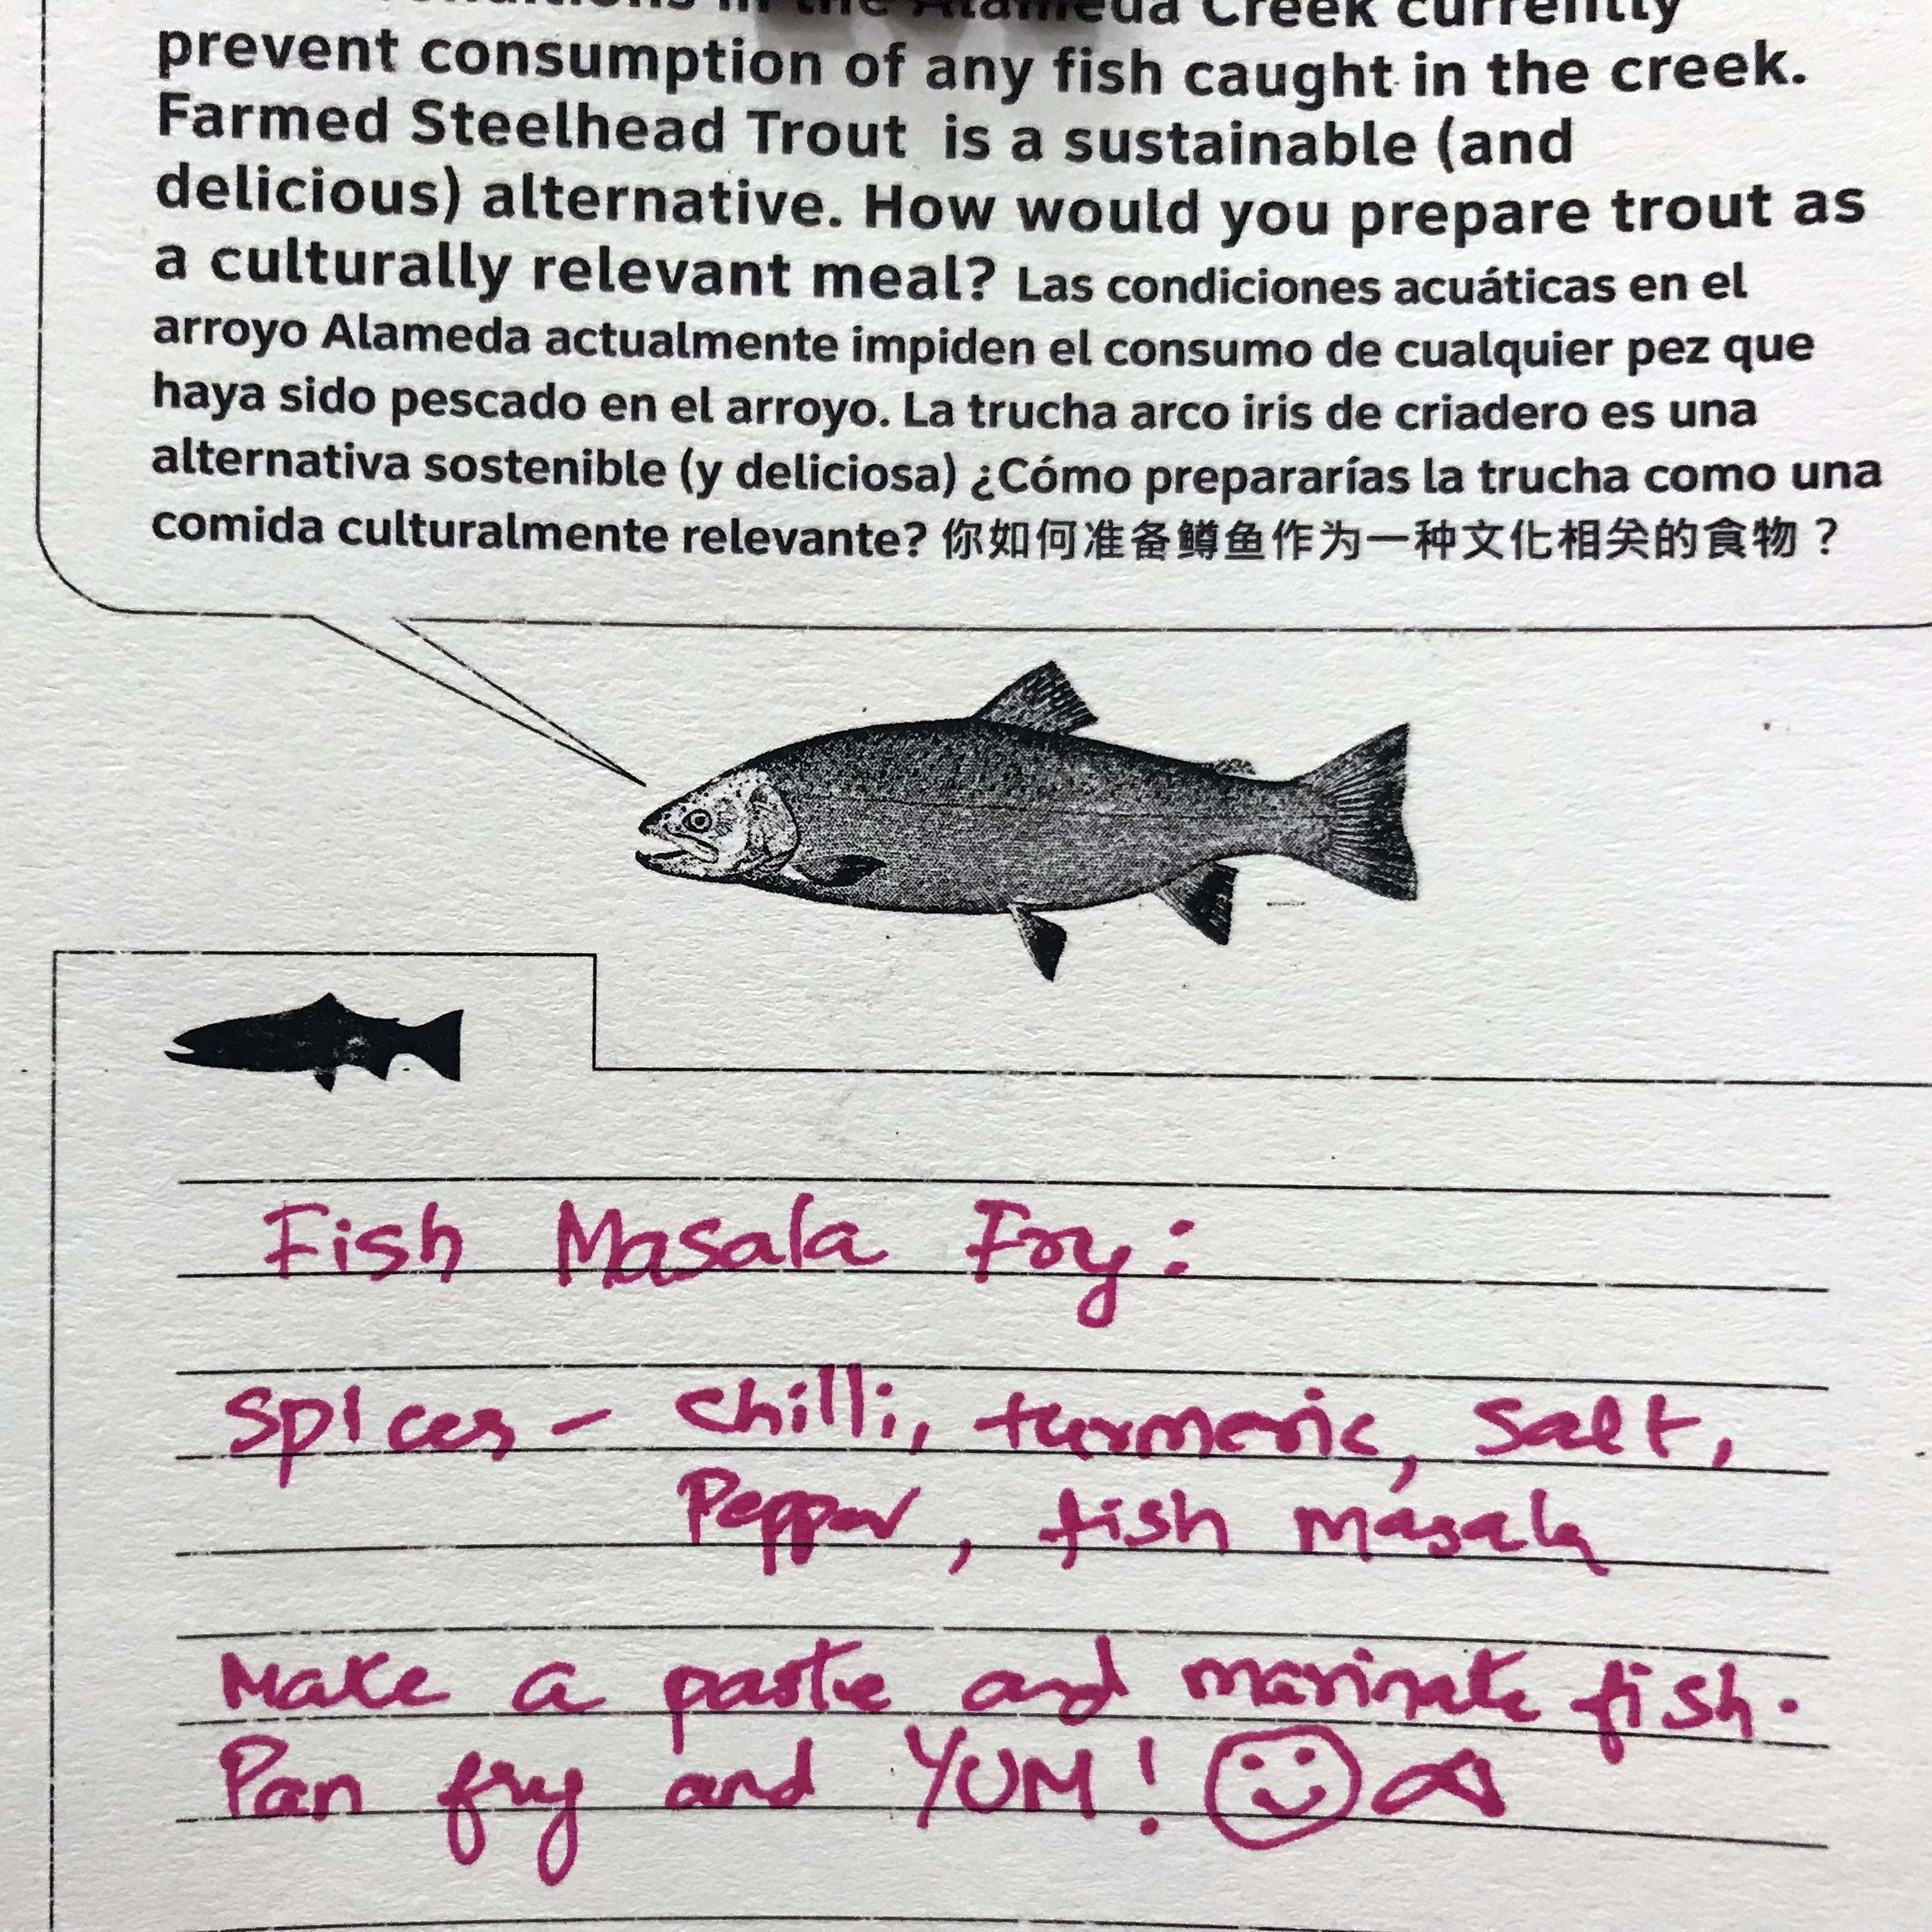 in the Alameda Creek currently
prevent consumption of any fish caught in the creek.
Farmed Steelhead Trout is a sustainable (and
delicious) alternative. How would you prepare trout as
a culturally relevant meal? Las condiciones acuáticas en el
arroyo Alameda actualmente impiden el consumo de cualquier pez que
haya sido pescado en el arroyo. La trucha arco iris de criadero es una
alternativa sostenible (y deliciosa) ¿Cómo prepararías la trucha como una
comida culturalmente relevante? 你如何准备鳟鱼作为一种文化相关的食物？
Fish Masala Fry:
Spices - Chilli, turmeric, Salt,
Pepper, fish masala
Make a paste and marinate fish.
Pan fry and YUM!